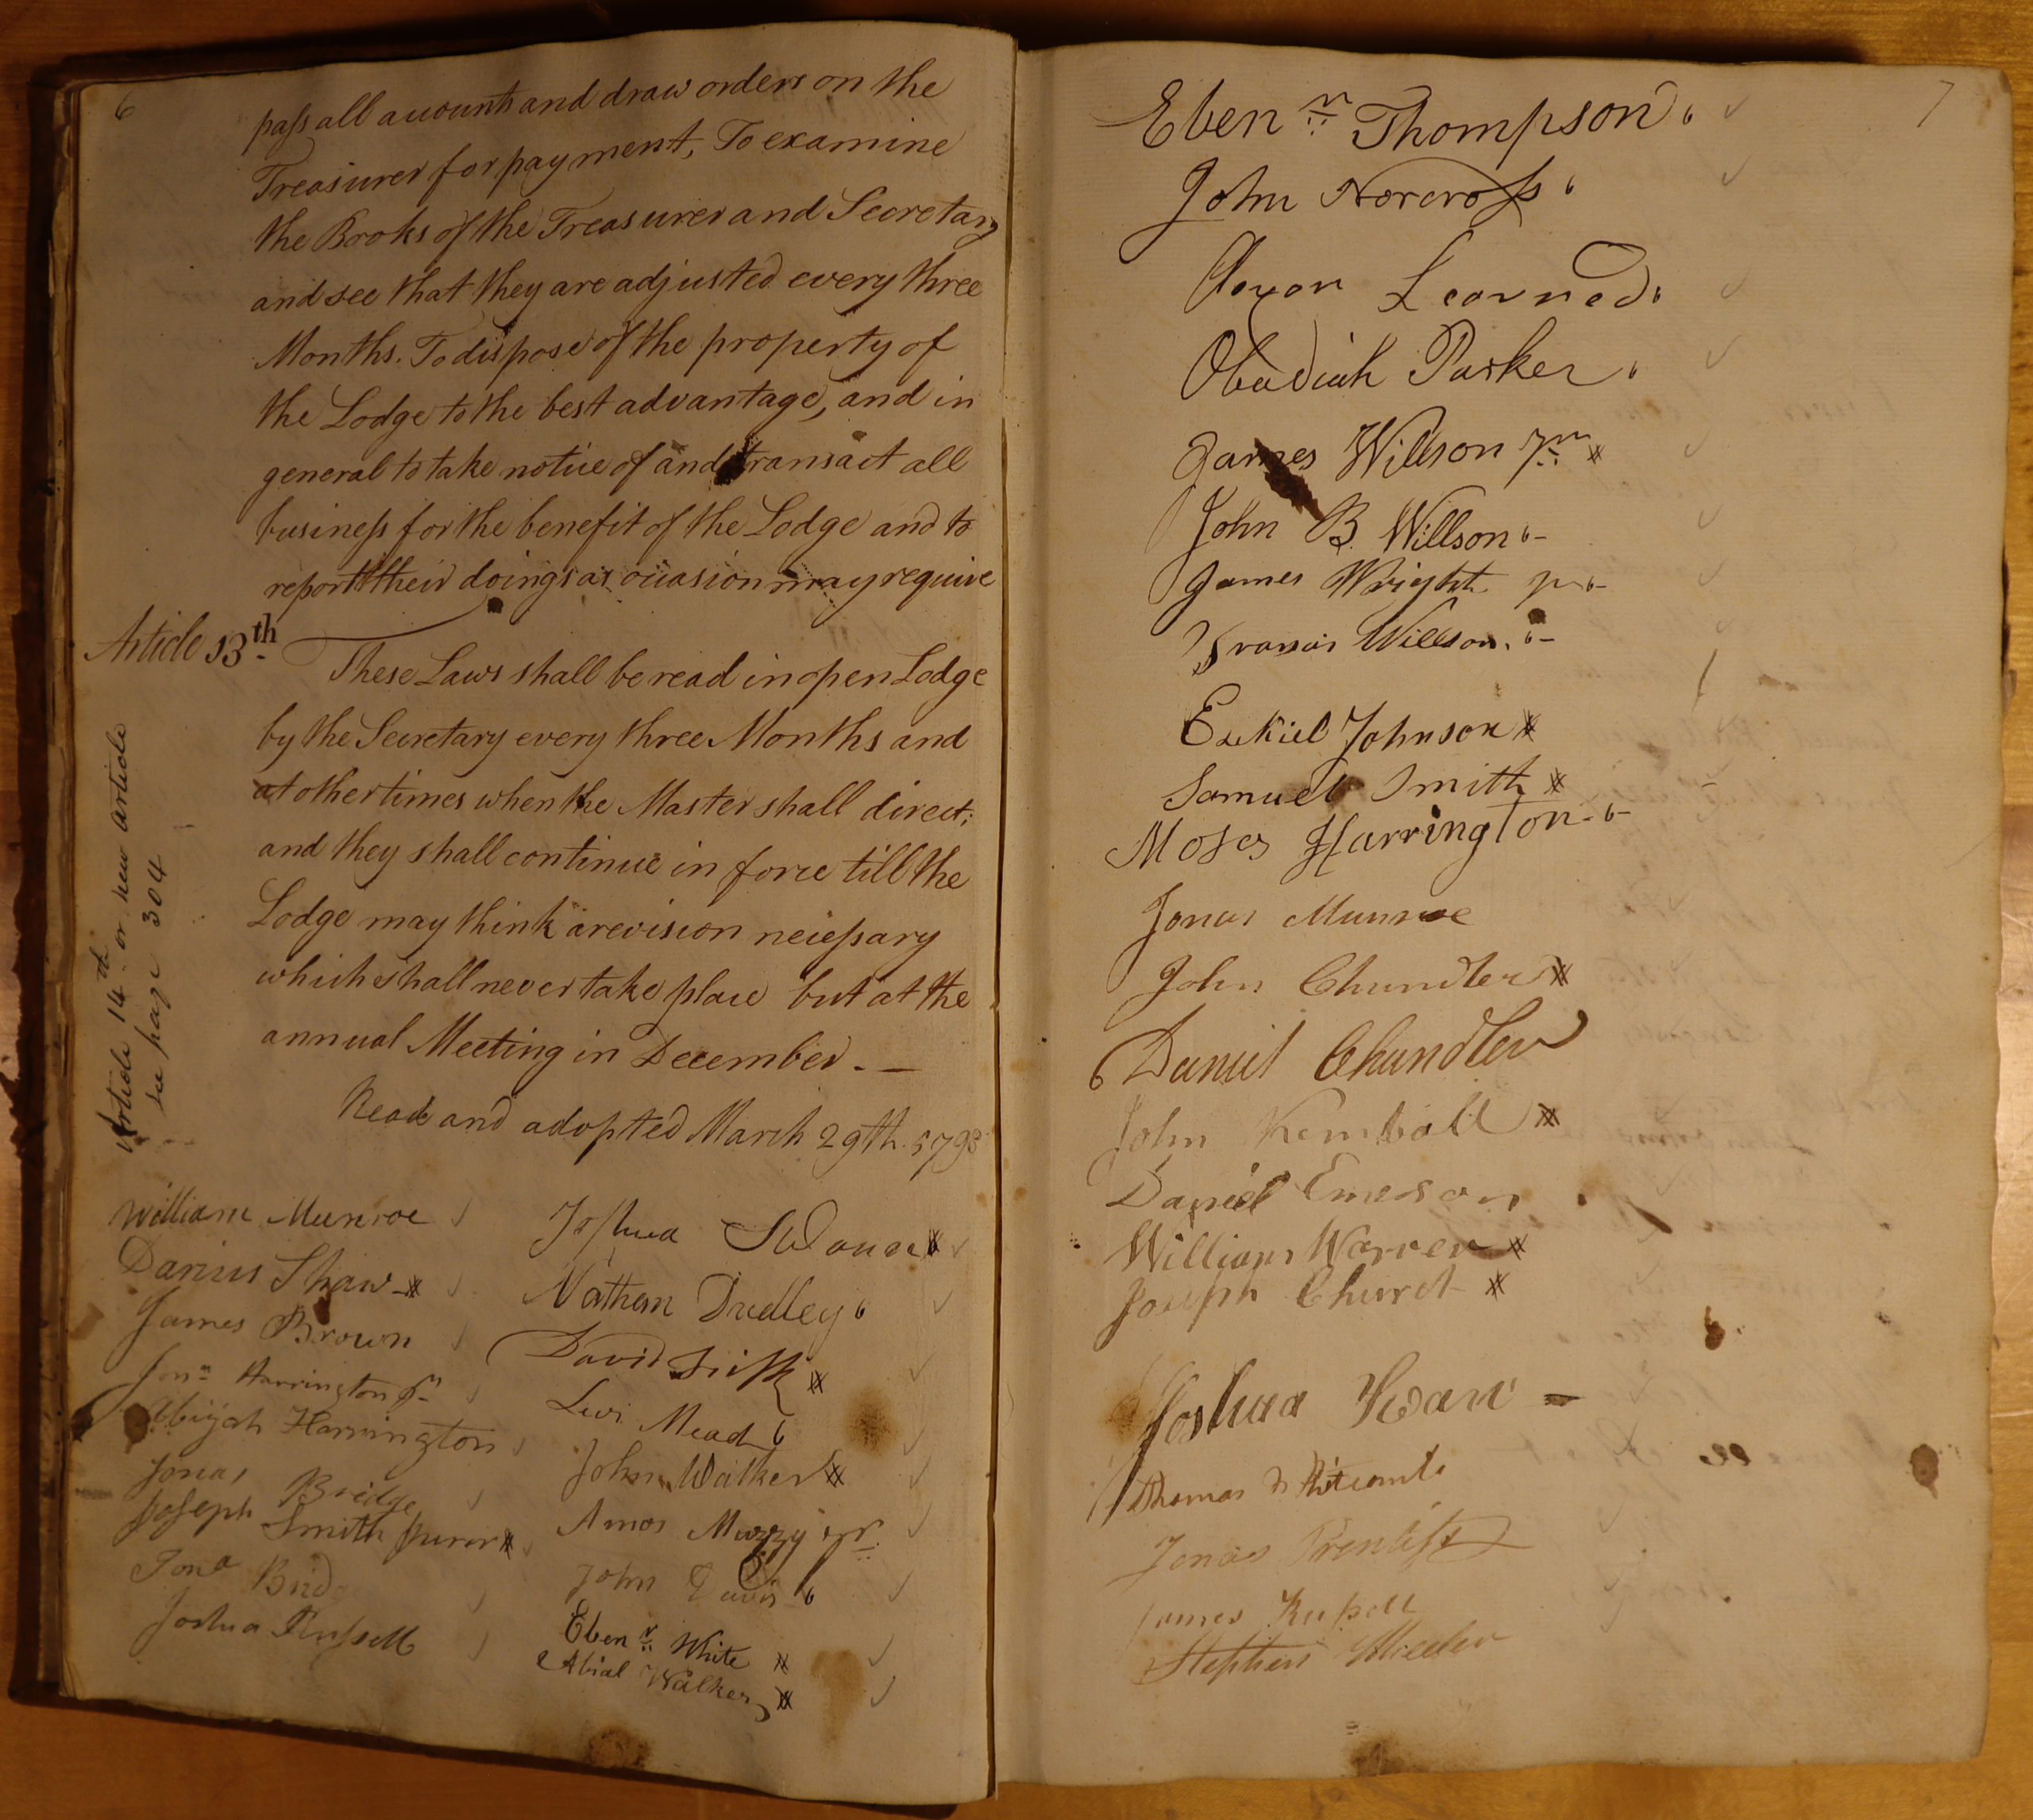 6
pass all accounts and draw orders on the
Treasurer for payment, To examine
the Books of the Treasurer and Secretary
and see that they are adjusted every three
Months. To dispose of the property of
the Lodge to the best advantage, and in
general to take notice of and transact all
business for the benefit of the Lodge and to
report their doings as occasion may require
Article 13th
These Laws shall be read in open Lodge
by the Secretary every three Months and
at other times when the Master shall direct;
and they shall continue in force till the
Lodge may think a revision necessary
which shall never take place but at the
annual Meeting in December. —
Read and adopted March 29th. 5798
Article 14th or new article
see page 304
William Munroe
Darius Shaw
James Brown
Jonn Harrington Jr
Abijah Harrington
Jonas Bridge
Joseph Smith Junor
Jona
Joshua Russell
Joshua
Nathan Dudley
David Fisk
Levi Mead
John Walker
Amos Muzzy Jr.
John Davis
Ebenr White
Abial Walker
7
Ebenr Thompson
John Norcross
Learned
Obadiah Parker
James Willson Jnr
John B Willson
James Wright Jr
Francis Willson
Ezekiel Johnson
Samuel Smith
Moses Harrington
Jonas Munroe
John Chandler
Daniel Chandler
John Kimball
Daniel Emerson
William Warren
Joseph Church
Joshua Swan
Thomas Whitcomb
Jonas Prentiss
James Russell
Stephen Wheeler